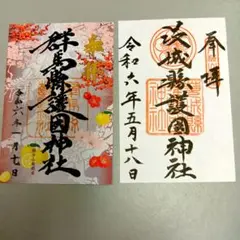 奉拝
群馬縣護國神社
令和六年一月七日
奉拝
茨城縣護國神社
令和六年五月十八日